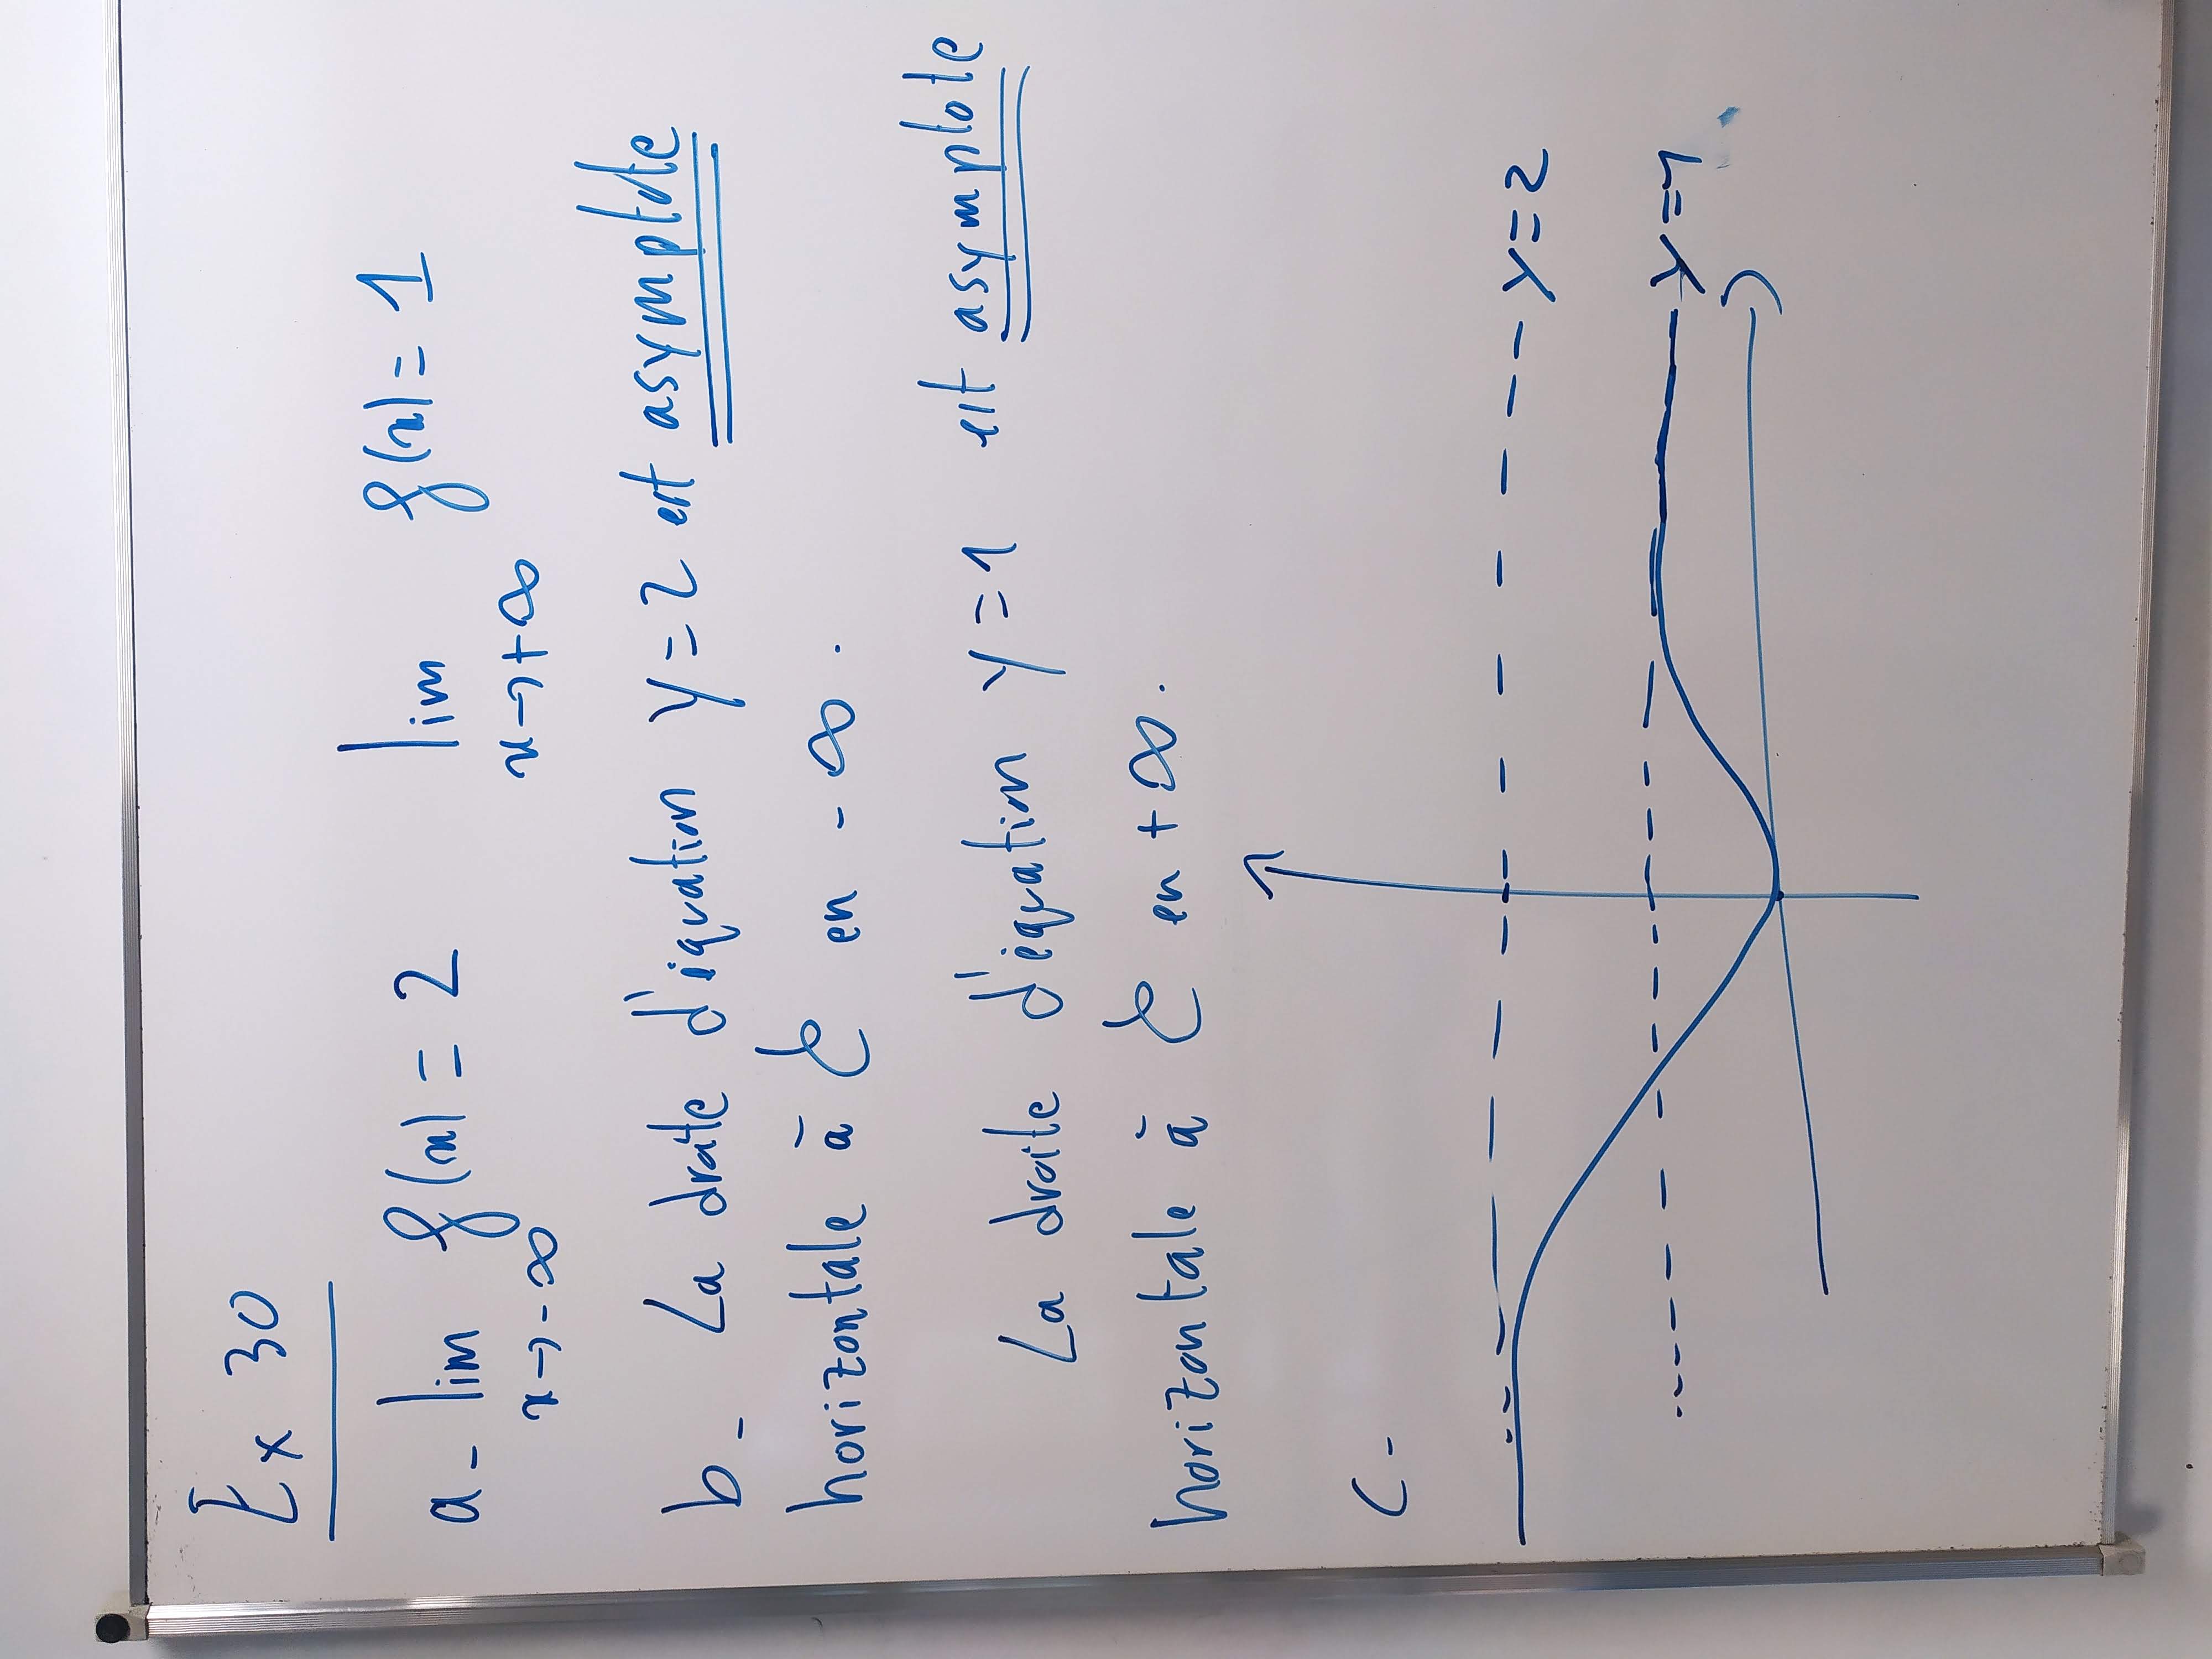 Ex 30
a- lim f(x) = 2 lim f(x) = 1
x→-∞ x→+∞
b- La droite d'équation y = 2 est asymptote
horizontale à C en -∞.
La droite d'équation y = 1 est asymptote
horizontale à C en +∞.
c-
y=2
y=1